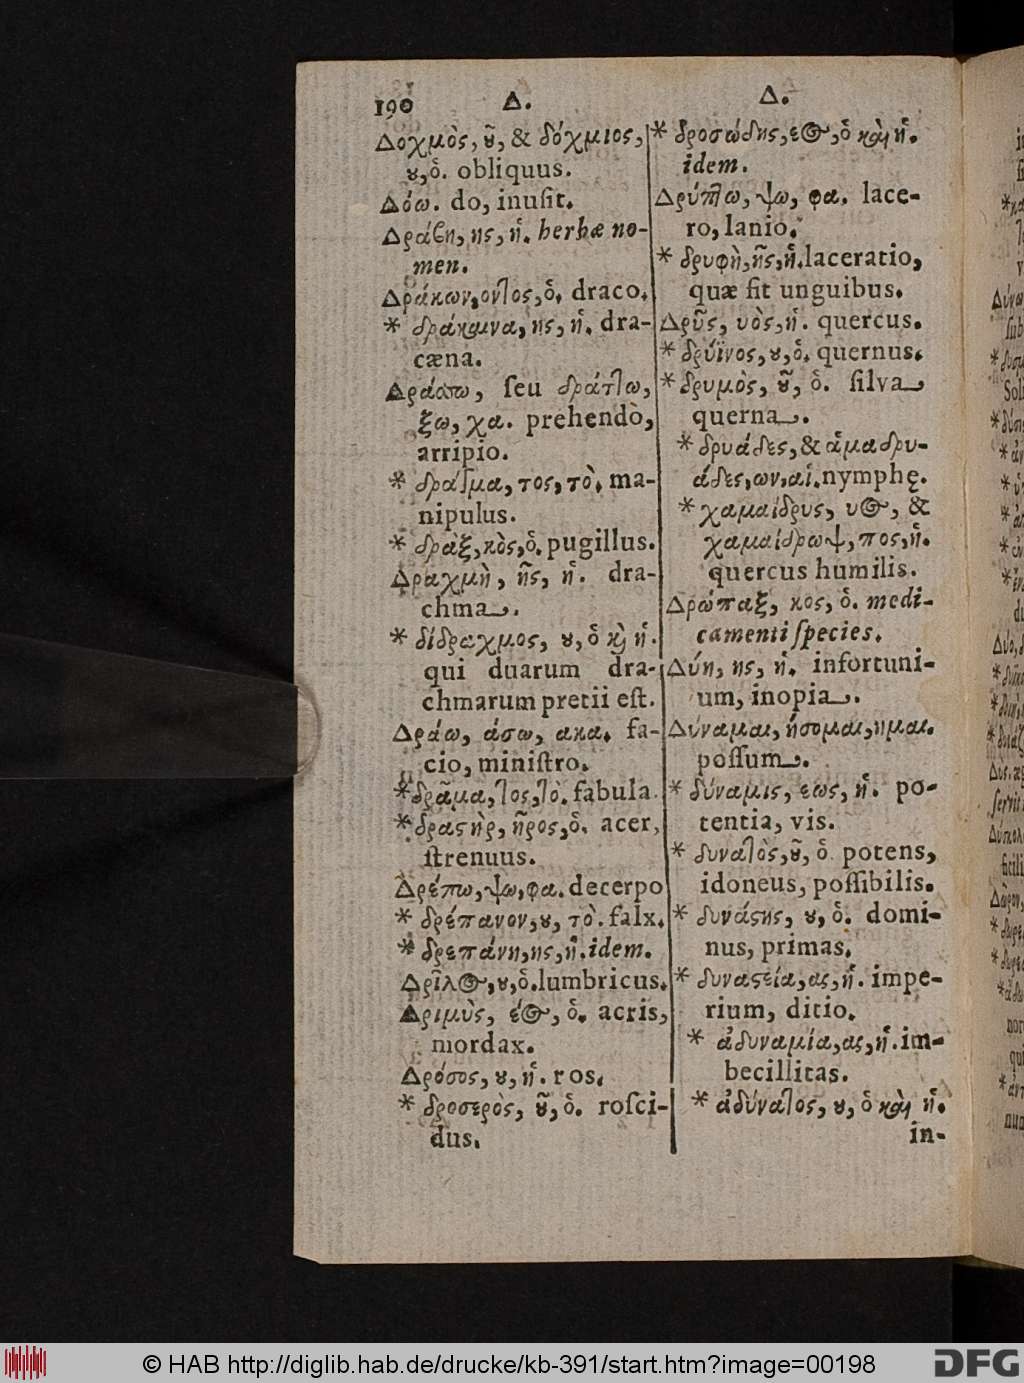 190 Δ. Δ.
Δοχμὸς, ȣ͂, & δόχμιος,
ȣ, ὁ. obliquus.
Δόω. do, inuſit.
Δράβη, ης, ἡ. herbæ no-
men.
Δράκων, οντος, ὁ. draco.
* δράκαινα, ης, ἡ. dra-
cæna.
Δράσσω, ſeu δράττω,
ξω, χα. prehendo,
arripio.
* δράγμα, τος, τὸ. ma-
nipulus.
* δρὰξ, κὸς, ὁ. pugillus.
Δραχμὴ, ῆς, ἡ. dra-
chma.
* δίδραχμος, ȣ, ὁ κ̀ ἡ.
qui duarum dra-
chmarum pretii eſt.
Δράω, άσω, ακα. fa-
cio, miniſtro.
* δρᾶμα, τος, τὸ. fabula.
* δραςὴρ, ῆρος, ὁ. acer,
ſtrenuus.
Δρέπω, ψω, φα. decerpo
* δρέπανον, ȣ, τὸ. falx.
* δρεπάνη, ης, ἡ. idem.
Δρῖλος, ȣ, ὁ. lumbricus.
Δριμὺς, έος, ὁ. acris,
mordax.
Δρόσος, ȣ, ἡ. ros.
* δροσερὸς, ȣ͂, ὁ. roſci-
dus.
* δροσώδης, εος, ὁ καὶ ἡ.
idem.
Δρύπτω, ψω, φα. lace-
ro, lanio.
* δρυφὴ, ῆς, ἡ. laceratio,
quæ fit unguibus.
Δρῦς, υὸς, ἡ. quercus.
* δρύϊνος, ȣ, ὁ. quernus.
* δρυμὸς, ȣ͂, ὁ. ſilva
querna.
* δρυάδες, & ἁμαδρυ-
άδες, ων, αἱ. nymphę.
* χαμαίδρυς, υος, &
χαμαίδρωψ, πος, ἡ.
quercus humilis.
Δρώπαξ, κος, ὁ. medi-
camenti ſpecies.
Δύη, ης, ἡ. infortuni-
um, inopia.
Δύναμαι, ήσομαι, ημαι.
poſſum.
* δύναμις, εως, ἡ. po-
tentia, vis.
* δυνατὸς, ȣ͂, ὁ potens,
idoneus, poſſibilis.
* δυνάςης, ȣ, ὁ. domi-
nus, primas.
* δυναςεία, ας, ἡ. impe-
rium, ditio.
* ἀδυναμία, ας, ἡ. im-
becillitas.
* ἀδύνατος, ȣ, ὁ καὶ ἡ.
in-
© HAB http://diglib.hab.de/drucke/kb-391/start.htm?image=00198
DFG